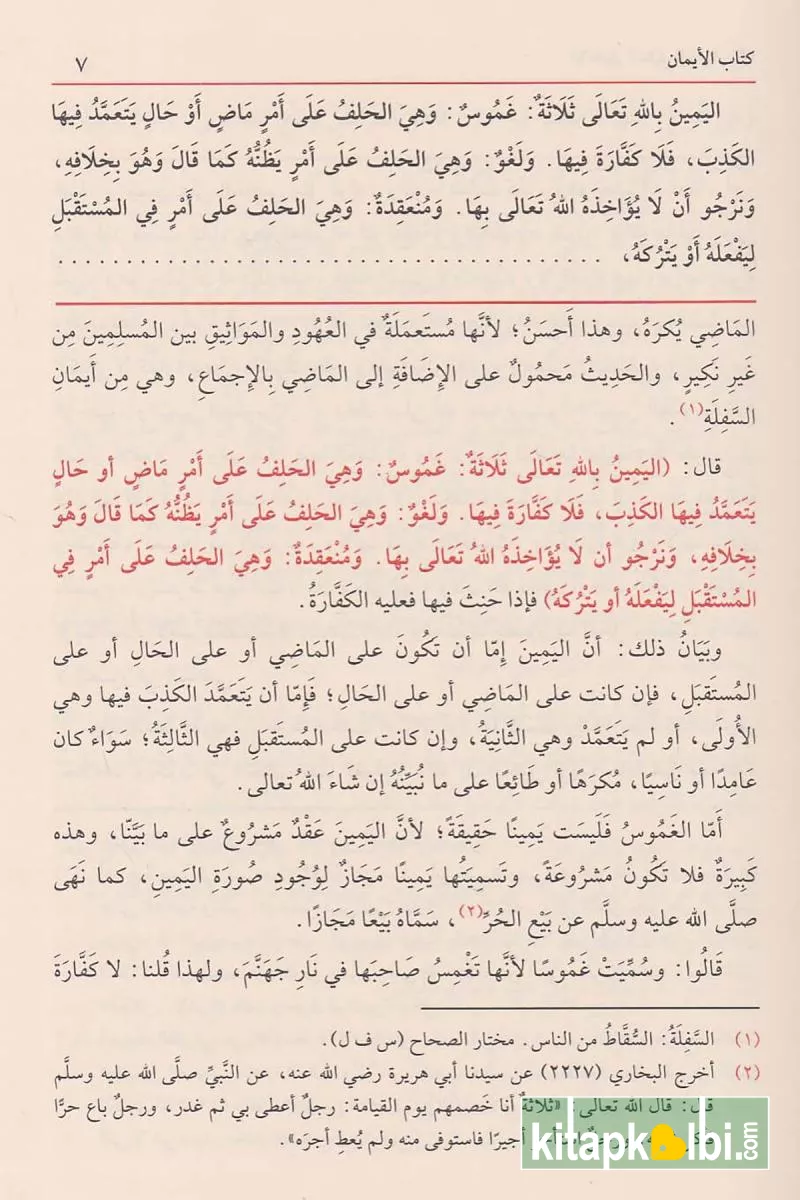 كتاب الأيمان ٧
اليَمِينُ بِاللهِ تَعَالَى ثَلَاثَةٌ: غَمُوسٌ: وَهِيَ الحَلِفُ عَلَى أَمْرٍ مَاضٍ أَوْ حَالٍ يَتَعَمَّدُ فِيهَا
الكَذِبَ، فَلَا كَفَّارَةَ فِيهَا. وَلَغْوٌ: وَهِيَ الحَلِفُ عَلَى أَمْرٍ يَظُنُّهُ كَمَا قَالَ وَهُوَ بِخِلَافِهِ،
وَنَرْجُو أَنْ لَا يُؤَاخِذَهُ اللهُ تَعَالَى بِهَا. وَمُنْعَقِدَةٌ: وَهِيَ الحَلِفُ عَلَى أَمْرٍ فِي المُسْتَقْبَلِ
لِيَفْعَلَهُ أَوْ يَتْرُكَهُ، ........................................
المَاضِي يُكرَهُ، وهذا أَحسَنُ؛ لأنَّها مُستَعمَلَةٌ في العُهُودِ والمَوَاثِيقِ بين المُسلِمِينَ مِن
غَيرِ نَكِيرٍ، والحَدِيثُ مَحمُولٌ على الإضَافَةِ إلى المَاضِي بِالإجمَاعِ، وهي مِن أَيمَانِ
السَّفِلَةِ(١).
قال: (اليَمِينُ بِاللهِ تَعَالَى ثَلَاثَةٌ: غَمُوسٌ: وَهِيَ الحَلِفُ عَلَى أَمْرٍ مَاضٍ أو حَالٍ
يَتَعَمَّدُ فِيهَا الكَذِبَ، فَلَا كَفَّارَةَ فِيهَا. وَلَغْوٌ: وَهِيَ الحَلِفُ عَلَى أَمْرٍ يَظُنُّهُ كَمَا قَالَ وَهُوَ
بِخِلَافِهِ، وَنَرْجُو أن لَا يُؤَاخِذَهُ اللهُ تَعَالَى بِهَا. وَمُنْعَقِدَةٌ: وَهِيَ الحَلِفُ عَلَى أَمْرٍ فِي
المُسْتَقْبَلِ لِيَفْعَلَهُ أو يَتْرُكَهُ) فإذا حَنِثَ فيها فعليه الكَفَّارَةُ.
وبَيَانُ ذلك: أنَّ اليَمِينَ إمَّا أن تَكُونَ على المَاضِي أو على الحَالِ أو على
المُستَقبَلِ، فإن كانت على المَاضِي أو على الحَالِ؛ فَإمَّا أن يَتَعَمَّدَ الكَذِبَ فيها وهي
الأُولَى، أو لم يَتَعَمَّدْ وهي الثَّانِيَةُ، وإن كانت على المُستَقبَلِ فهي الثَّالِثَةُ؛ سَوَاءٌ كان
عَامِدًا أو نَاسِيًا، مُكرَهًا أو طَائِعًا على ما نُبَيِّنُهُ إن شَاءَ اللهُ تعالى.
أَمَّا الغَمُوسُ فَلَيسَت يَمِينًا حَقِيقَةً؛ لأنَّ اليَمِينَ عَقْدٌ مَشرُوعٌ على ما بَيَّنَّا، وهذه
كَبِيرَةٌ فلا تَكُونُ مَشرُوعَةً، وتَسمِيَتُها يَمِينًا مَجَازٌ لِوُجُودِ صُورَةِ اليَمِينِ، كما نَهَى
صلَّى الله عليه وسلَّم عن بَيْعِ الحُرِّ(٢)، سَمَّاهُ بَيْعًا مَجَازًا.
قَالُوا: وسُمِّيَتْ غَمُوسًا لأنَّها تَغْمِسُ صَاحِبَها في نَارِ جَهَنَّمَ، ولهذا قُلنا: لا كَفَّارَةَ
(١) السَّفِلَةُ: السُّقَّاطُ من الناس. مختار الصحاح (س ف ل).
(٢) أخرج البخاري (٢٢٢٧) عن سيدنا أبي هريرة رضي الله عنه، عن النَّبيِّ صلَّى الله عليه وسلَّم
قال: قال الله تعالى: «ثلاثةٌ أنا خَصمهم يوم القيامة: رجلٌ أعطى بي ثم غدر، ورجلٌ باع حرًّا
أجيرًا فاستوفى منه ولم يُعطِ أجرَه».
kitapkalbi.com